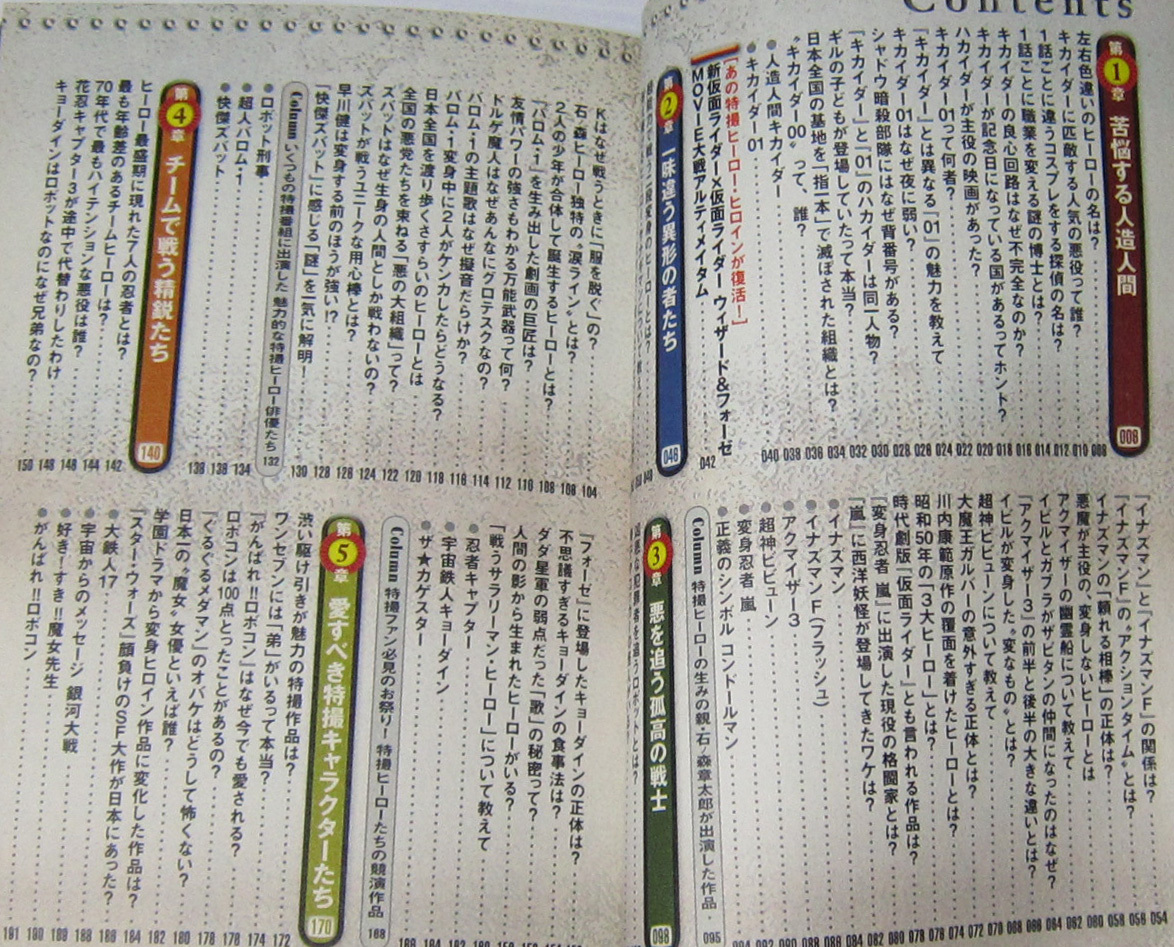 Contents
第1章 苦悩する人造人間 008
左右色違いのヒーローの名は? 008
キカイダーに匹敵する人気の悪役って誰? 010
1話ごとに違うコスプレをする探偵の名は? 012
1話ごとに職業を変える謎の博士とは? 014
キカイダーの良心回路はなぜ不完全なのか? 016
キカイダーが記念日になっている国があるってホント? 018
ハカイダーが主役の映画があった? 020
キカイダー01って何者? 022
「キカイダー」とは異なる「01」の魅力を教えて 024
キカイダー01はなぜ夜に弱い? 026
シャドウ暗殺部隊にはなぜ背番号がある? 028
「キカイダー」と「01」のハカイダーは同一人物? 030
ギルの子どもが登場していたって本当? 032
日本全国の基地を「指一本」で滅ぼされた組織とは? 034
“キカイダー00”って、誰? 036
●人造人間キカイダー 038
●キカイダー01 040
[あの特撮ヒーロー・ヒロインが復活!]
新仮面ライダー×仮面ライダー ウィザード&フォーゼ
MOVIE大戦アルティメイタム 042
第2章 一味違う異形の者たち 046
「イナズマン」と「イナズマンF」の関係は? 054
「イナズマンF」の“アクションタイム”とは? 056
イナズマンの「頼れる相棒」の正体は? 058
悪魔が主役の、変身しないヒーローとは 060
アクマイザーの幽霊船について教えて 062
イビルとガブラがザビタンの仲間になったのはなぜ? 064
「アクマイザー3」の前半と後半の大きな違いとは? 066
イビルが変身した“変なもの”とは? 068
超神ビビューンについて教えて 070
大魔王ガルバーの意外すぎる正体とは? 072
川内康範原作の覆面を着けたヒーローとは? 074
昭和50年の「3大ヒーロー」とは? 076
時代劇版「仮面ライダー」とも言われる作品は? 078
「変身忍者 嵐」に出演した現役の格闘家とは?
「嵐」に西洋妖怪が登場してきたワケは?
●イナズマン
●イナズマンF(フラッシュ)
●アクマイザー3
●超神ビビューン
●変身忍者 嵐
●正義のシンボル コンドールマン
Column 特撮ヒーローの生みの親・石ノ森章太郎が出演した作品 095
第3章 悪を追う孤高の戦士 098
Kはなぜ戦うときに「服を脱ぐ」の? 104
石ノ森ヒーロー独特の“涙ライン”とは? 106
2人の少年が合体して誕生するヒーローとは? 108
「バロム・1」を生み出した劇画の巨匠は? 110
友情パワーの強さもわかる万能武器って何? 112
ドルゲ魔人はなぜあんなにグロテスクなの? 114
バロム・1の主題歌はなぜ擬音だらけか? 116
バロム・1変身中に2人がケンカしたらどうなる? 118
日本全国を渡り歩くさすらいのヒーローとは 120
全国の悪党たちを束ねる「悪の大組織」って? 122
ズバットはなぜ生身の人間としか戦わないの? 124
ズバットが戦うユニークな用心棒とは? 126
早川健は変身する前のほうが強い!? 128
「快傑ズバット」に感じる「謎」を一気に解明! 130
Column いくつもの特撮番組に出演した 魅力的な特撮ヒーロー俳優たち 132
●ロボット刑事 134
●超人バロム・1 136
●快傑ズバット 138
第4章 チームで戦う精鋭たち 140
ヒーロー最盛期に現れた7人の忍者とは? 142
最も年齢差のあるチームヒーローは? 144
70年代で最もハイテンションな悪役は誰? 146
花忍キャプター3が途中で代替わりしたわけ 148
キョーダインはロボットなのになぜ兄弟なの? 150
「フォーゼ」に登場したキョーダインの正体は?
不思議すぎるキョーダインの食事法は?
ダダ星軍の弱点だった「歌」の秘密って?
人間の影から生まれたヒーローがいる?
「戦うサラリーマン・ヒーロー」について教えて
●忍者キャプター
●宇宙鉄人キョーダイン
●ザ★カゲスター
Column 特撮ファン必見のお祭り! 特撮ヒーローたちの競演作品 168
第5章 愛すべき特撮キャラクターたち 170
渋い駆け引きが魅力の特撮作品は? 172
ワンセブンには「弟」がいるって本当? 174
「がんばれ!!ロボコン」はなぜ今でも愛される? 176
ロボコンは100点とったことがあるの? 178
「ぐるぐるメダマン」のオバケはどうして怖くない? 178
日本一の“魔女”女優といえば誰? 180
学園ドラマから変身ヒロイン作品に変化した作品は? 182
「スター・ウォーズ」顔負けのSF大作が日本にあった? 184
●大鉄人17 186
●宇宙からのメッセージ 銀河大戦 188
●好き!すき!!魔女先生 190
●がんばれ!!ロボコン 191